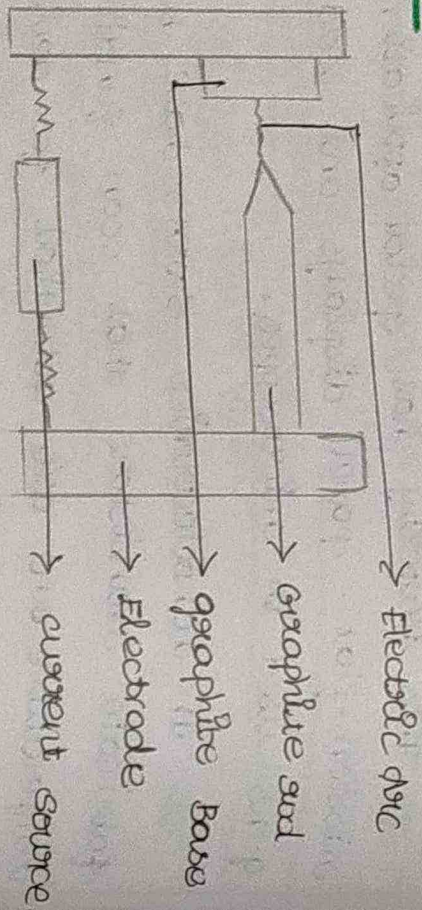 Electric Arc
Graphite rod
graphite Base
Electrode
current source